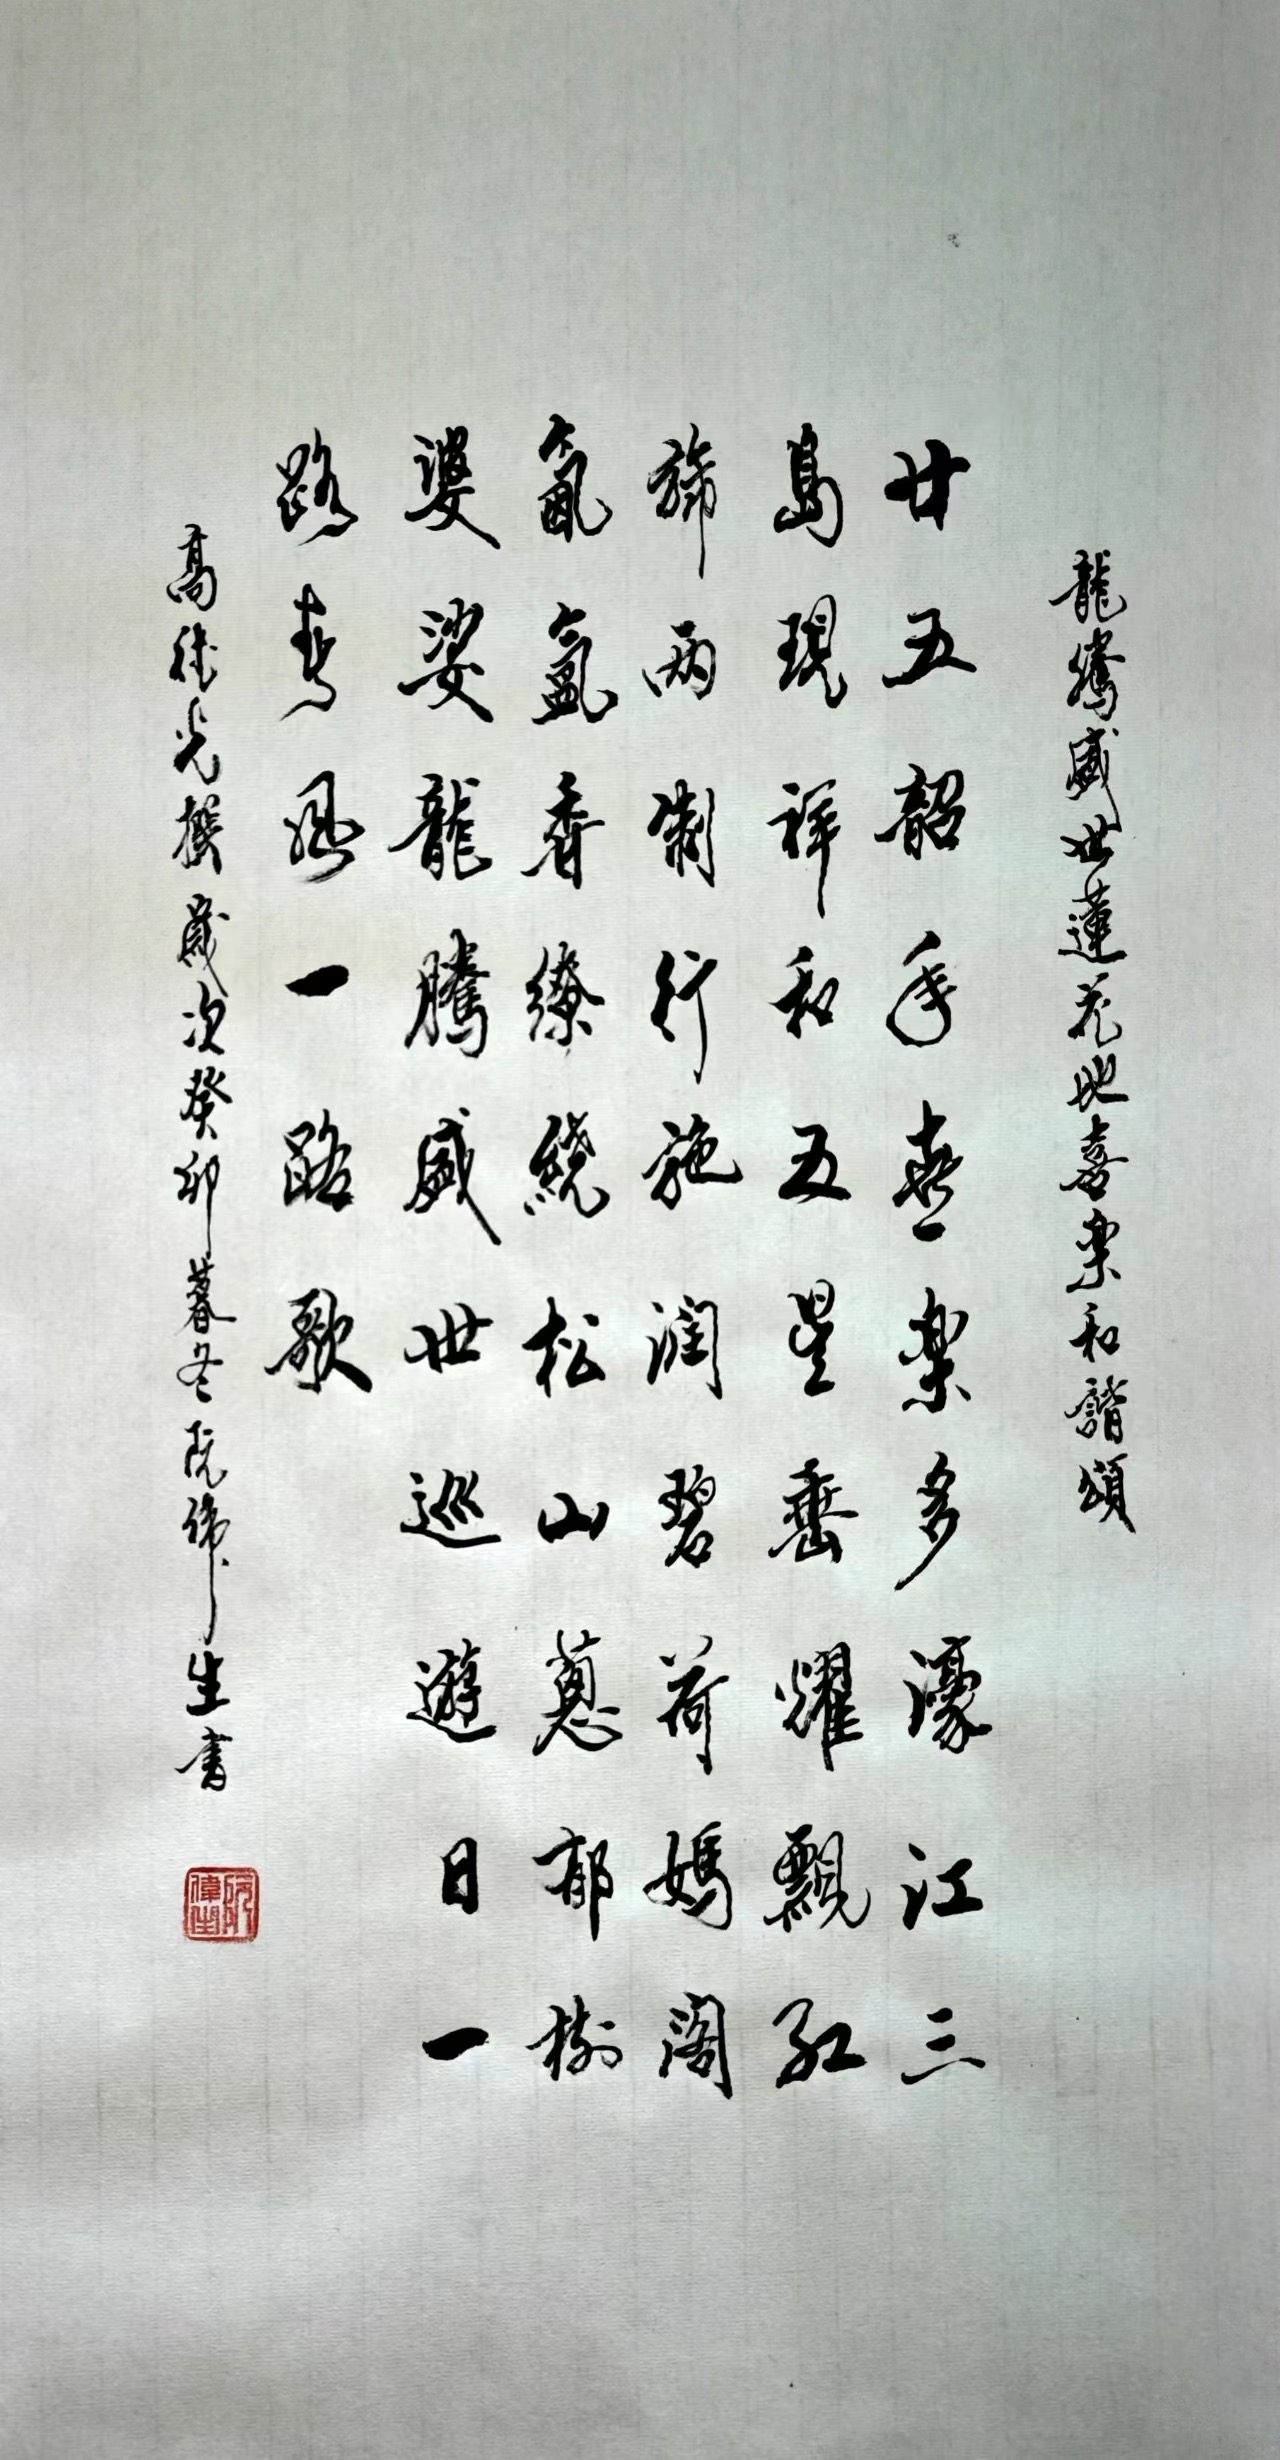 龍騰盛世蓮花地喜樂和諧頌
廿五韶年喜樂多濠江三
島現祥和五星垂耀飄紅
斾兩制行施潤碧荷媽閣
氤氳香繚繞松山蔥郁樹
婆娑龍騰盛世巡遊日一
路春風一路歌
高德光撰歲次癸卯暮冬阮偉生書
阮偉生